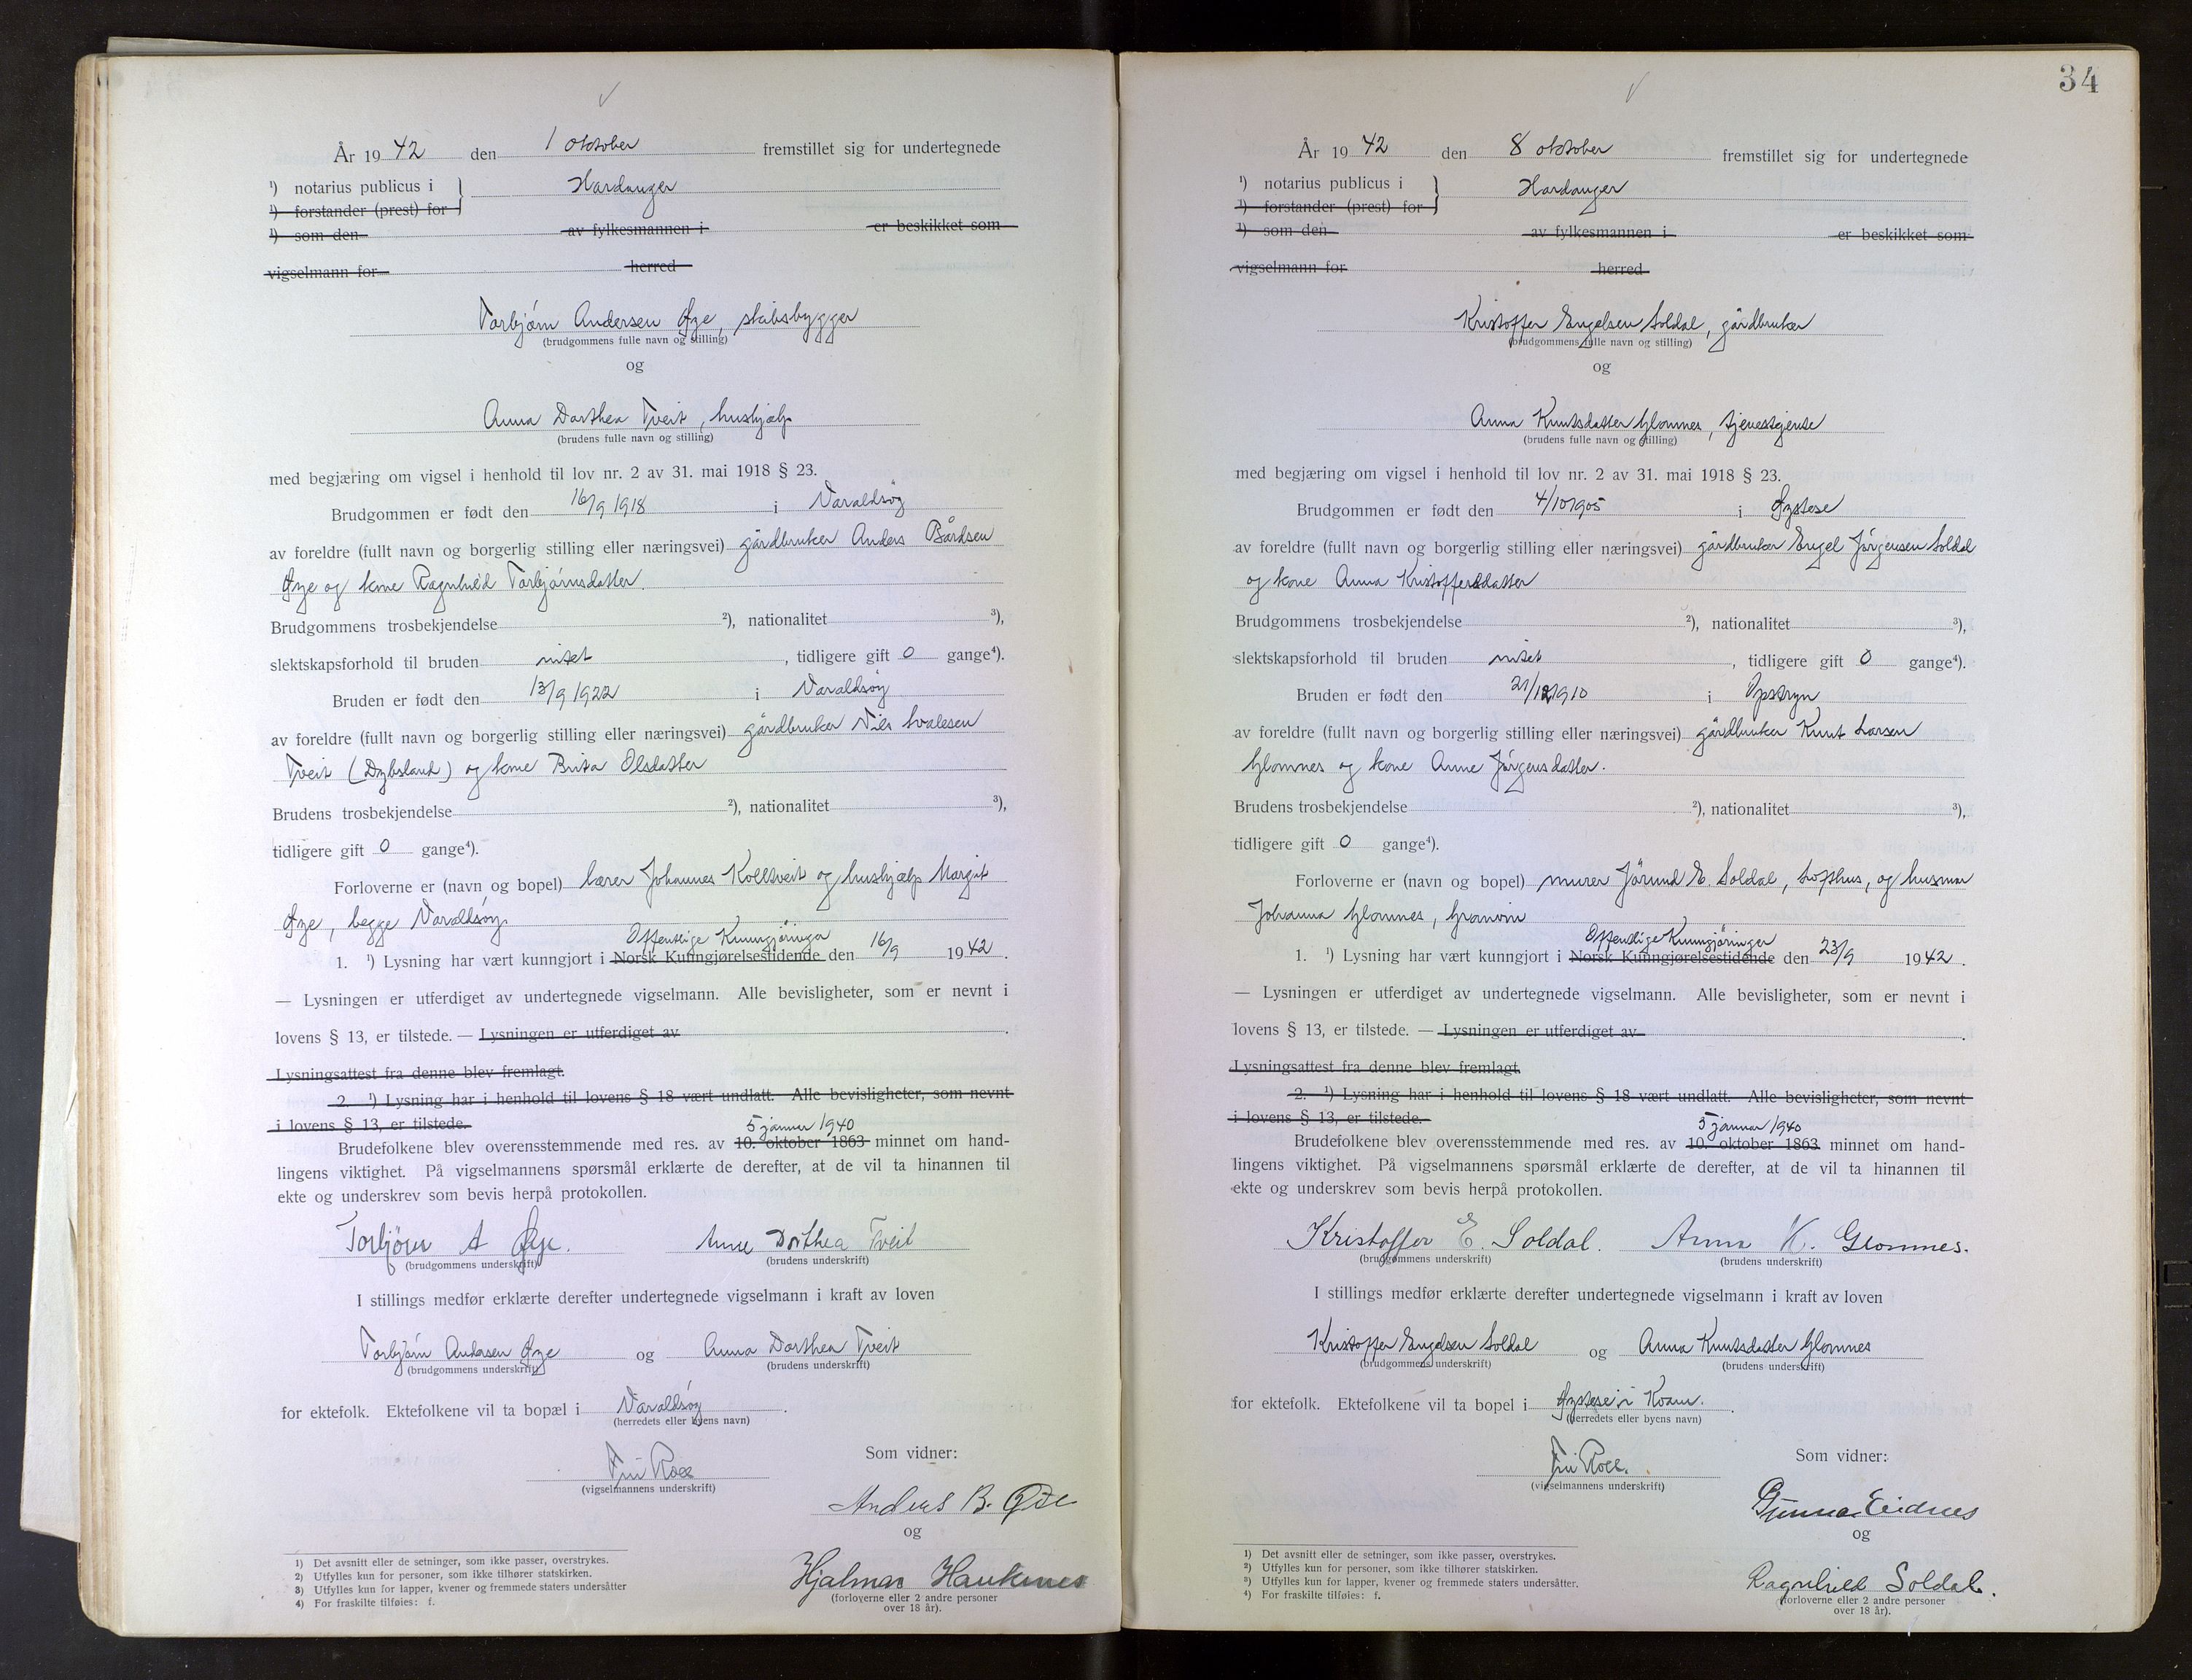 År 1942 den 1 oktober fremstillet sig for undertegnede
¹) notarius publicus i } Hardanger
¹) forstander (prest) for
¹) som den av fylkesmannen i er beskikket som
vigselmann for herred
Torbjørn Andersen Øye, skibsbygger
(brudgommens fulle navn og stilling)
og
Anna Dorthea Tveit, hushjælp
(brudens fulle navn og stilling)
med begjæring om vigsel i henhold til lov nr. 2 av 31. mai 1918 § 23.
Brudgommen er født den 16/9 1918 i Varaldsøy
av foreldre (fullt navn og borgerlig stilling eller næringsvei) gårdbruker Anders Bårdsen
Øye og kone Ragnhild Torbjørnsdatter.
Brudgommens trosbekjendelse ²), nationalitet ³),
slektskapsforhold til bruden intet, tidligere gift 0 gange⁴).
Bruden er født den 13/9 1922 i Varaldsøy
av foreldre (fullt navn og borgerlig stilling eller næringsvei) gårdbruker Nils
Tveit (Dybsland) og kone Brita Olsdatter
Brudens trosbekjendelse ²), nationalitet ³),
tidligere gift 0 gange⁴).
Forloverne er (navn og bopel) lærer Johannes Kolltveit og hushjælp Margit
Øye, begge Varaldsøy.
Offentlige Kunngjøringer
1. ¹) Lysning har vært kunngjort i Norsk Kunngjørelsestidende den 16/9 1942.
— Lysningen er utferdiget av undertegnede vigselmann. Alle bevisligheter, som er nevnt i
lovens § 13, er tilstede. — Lysningen er utferdiget av .
Lysningsattest fra denne blev fremlagt.
2. ¹) Lysning har i henhold til lovens § 18 vært undlatt. Alle bevisligheter, som nevnt
i lovens § 13, er tilstede.
5 januar 1940
Brudefolkene blev overensstemmende med res. av 10. oktober 1863 minnet om hand-
lingens viktighet. På vigselmannens spørsmål erklærte de derefter, at de vil ta hinannen til
ekte og underskrev som bevis herpå protokollen.
Torbjörn A Øye. Anna Dorthea Tveit
(brudgommens underskrift) (brudens underskrift)
I stillings medfør erklærte derefter undertegnede vigselmann i kraft av loven
Torbjørn Andersen Øye og Anna Dorthea Tveit
(brudgommens underskrift) (brudens underskrift)
for ektefolk. Ektefolkene vil ta bopæl i Varaldsøy.
(herredets eller byens navn)
Roll
(vigselmannens underskrift)
Som vidner:
Anders B. Øie
og
Hjalmar Haukenes
(forloverne eller 2 andre personer
over 18 år).
1) Det avsnitt eller de setninger, som ikke passer, overstrykes.
2) Utfylles kun for personer, som ikke tilhører statskirken.
3) Utfylles kun for lapper, kvener og fremmede staters undersåtter
4) For fraskilte tilføies: f.
34
År 1942 den 8 oktober fremstillet sig for undertegnede
¹) notarius publicus i } Hardanger
¹) forstander (prest) for
¹) som den av fylkesmannen i er beskikket som
vigselmann for herred
Kristoffer Engelsen Soldal, gårdbruker
(brudgommens fulle navn og stilling)
og
Anna Knutsdatter Glomnes, tjenestjente
(brudens fulle navn og stilling)
med begjæring om vigsel i henhold til lov nr. 2 av 31. mai 1918 § 23.
Brudgommen er født den 4/10 1905 i Øystese
av foreldre (fullt navn og borgerlig stilling eller næringsvei) gårdbruker Engel Jørgensen Soldal
og kone Anna Kristoffersdatter
Brudgommens trosbekjendelse ²), nationalitet ³),
slektskapsforhold til bruden intet, tidligere gift 0 gange⁴).
Bruden er født den 21/12 1910 i Opstryn
av foreldre (fullt navn og borgerlig stilling eller næringsvei) gårdbruker Knut Larsen
Glomnes og kone Anne Jørgensdatter.
Brudens trosbekjendelse ²), nationalitet ³),
tidligere gift 0 gange⁴).
Forloverne er (navn og bopel) murer Jörund E. Soldal, Lofthus, og husmor
Johanna Glomnes, Granvin
Offentlige Kunngjöringer
1. ¹) Lysning har vært kunngjort i Norsk Kunngjørelsestidende den 23/9 1942.
— Lysningen er utferdiget av undertegnede vigselmann. Alle bevisligheter, som er nevnt i
lovens § 13, er tilstede. — Lysningen er utferdiget av .
Lysningsattest fra denne blev fremlagt.
2. ¹) Lysning har i henhold til lovens § 18 vært undlatt. Alle bevisligheter, som nevnt
i lovens § 13, er tilstede.
5 januar 1940
Brudefolkene blev overensstemmende med res. av 10. oktober 1863 minnet om hand-
lingens viktighet. På vigselmannens spørsmål erklærte de derefter, at de vil ta hinannen til
ekte og underskrev som bevis herpå protokollen.
Kristoffer E. Soldal. Anna K. Glomnes.
(brudgommens underskrift) (brudens underskrift)
I stillings medfør erklærte derefter undertegnede vigselmann i kraft av loven
Kristoffer Engelsen Soldal og Anna Knutsdatter Glomnes
(brudgommens underskrift) (brudens underskrift)
for ektefolk. Ektefolkene vil ta bopel i Øystese i Kvam.
(herredets eller byens navn)
Roll.
(vigselmannens underskrift)
Som vidner:
Gunnar Eidnes
og
Ragnhild Soldal.
(forloverne eller 2 andre personer
over 18 år).
1) Det avsnitt eller de setninger, som ikke passer, overstrykes.
2) Utfylles kun for personer, som ikke tilhører statskirken.
3) Utfylles kun for lapper, kvener og fremmede staters undersåtter.
4) For fraskilte tilføies: f.